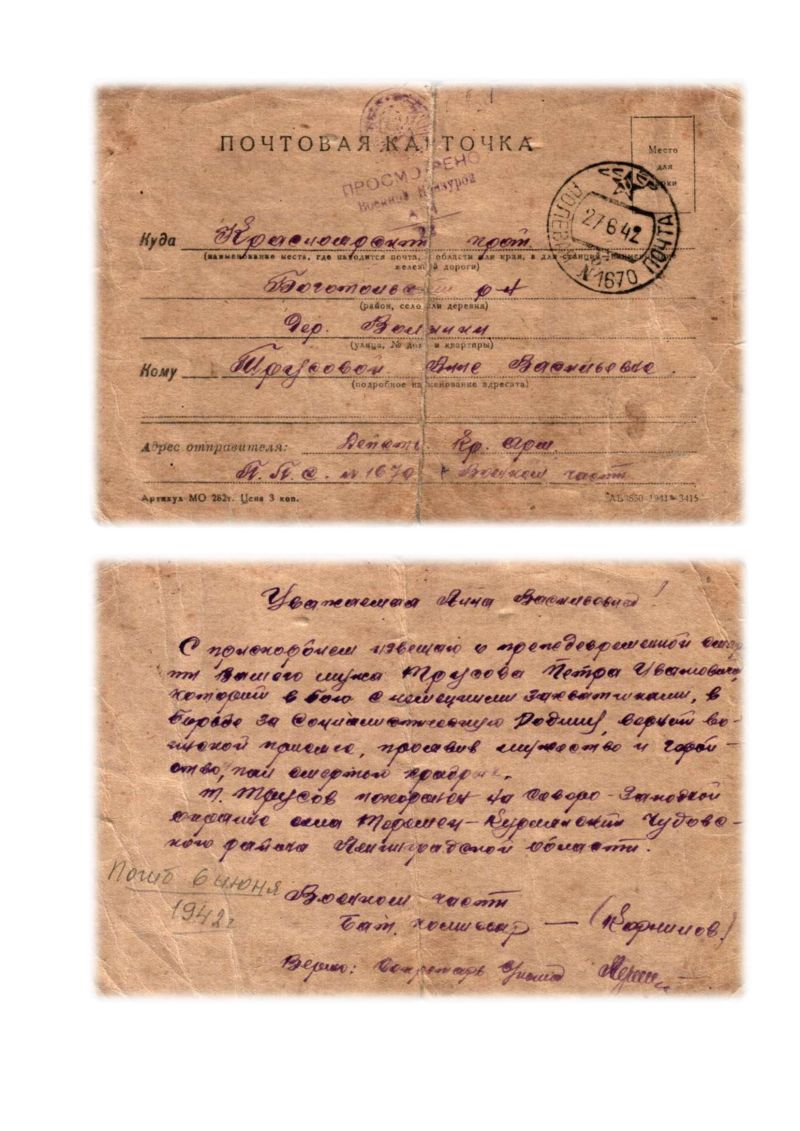 ПОЧТОВАЯ КАРТОЧКА
Место
для
марки
ПРОСМОТРЕНО
Военной Цензурой
ПОЛЕВАЯ ПОЧТА
27 6 42
№ 1670
Куда Красноярский
(наименование места, где находится почта, области или края, а для станций—наименование
железной дороги)
р-н
(район, село или деревня)
Дер.
(улица, № дома и квартиры)
Кому Трусовой Анне Васильевне
(подробное наименование адресата)
Адрес отправителя: Кр.
П.П.С. № 1670 Военком части
Артикул МО 262г. Цена 3 коп.
Уважаемая Анна Васильевна!
С прискорбием извещаю о преждевременной смер
ти Вашего мужа Трусова Петра Ивановича,
который в бою с немецкими захватчиками, в
борьбе за Социалистическую Родину, верный во-
инской присяге, проявив мужество и герой-
ство, пал смертью храбрых.
т. Трусов похоронен на Северо-Западной
окраине села Чудовс-
кого района Ленинградской области.
Погиб 6 июня
1942г
Военком части
Бат. комиссар — (Корнилов)
Верно: Секретарь